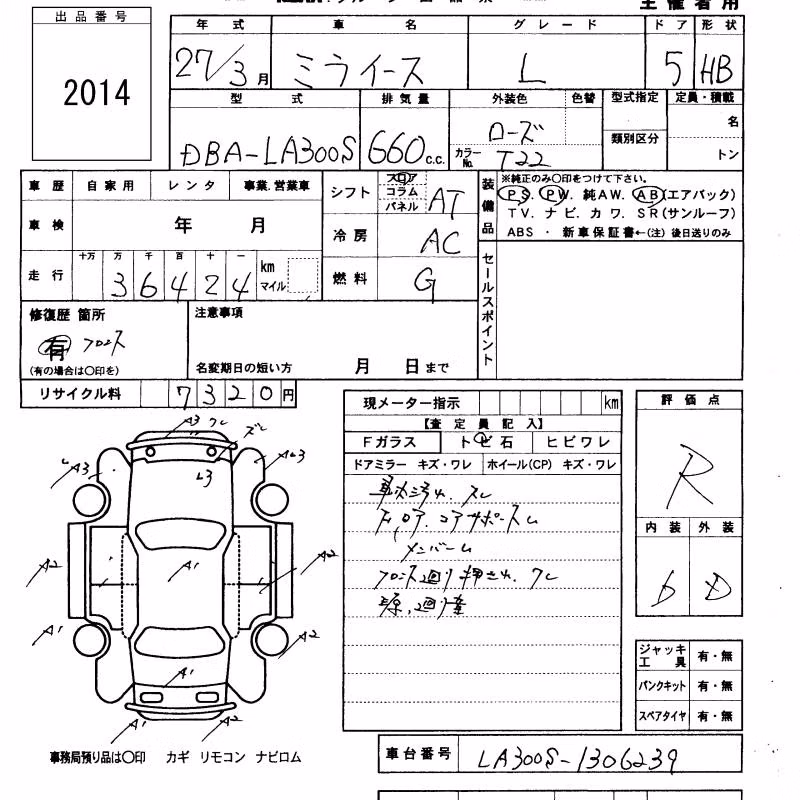 主催者用
出品番号
2014
年式 車名 グレード ドア 形状
27/3月 ミライース L 5 HB
型式 排気量 外装色 色替 型式指定 定員・積載
DBA-LA300S 660c.c. ローズ 類別区分 名
カラーNo. T22 トン
車歴 自家用 レンタ 事業.営業車
車検 年 月
走行 十万 万 千 百 十 一 km マイル
36424
シフト フロア コラム パネル AT
冷房 AC
燃料 G
装備品
※純正のみ○印をつけて下さい。
PS. PW. 純AW. AB(エアバック)
TV. ナビ. カワ. SR(サンルーフ)
ABS ・ 新車保証書←(注) 後日送りのみ
セールスポイント
修復歴 箇所
有 フロント
(有の場合は○印を)
注意事項
名変期日の短い方 月 日まで
リサイクル料 7320円
現メーター指示 km
【査定員記入】
Fガラス トビ石 ヒビワレ
ドアミラー キズ・ワレ ホイール(CP) キズ・ワレ
車内汚れ. スレ
コアサポースム
メンバーム
フロント廻り押され. ワレ
評価点
R
内装 外装
D
ジャッキ工具 有・無
パンクキット 有・無
スペアタイヤ 有・無
A3 ワレ ズレ
A3 A3
A2 A1 A2
A1 A2
A1
A1 A2
事務局預り品は○印 カギ リモコン ナビロム
車台番号 LA300S-1306239